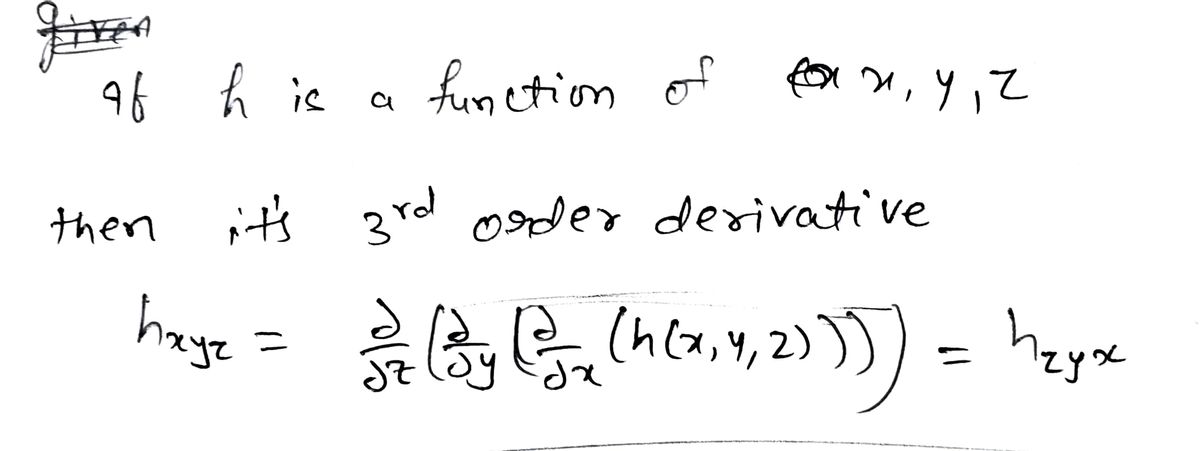 given
If h is a function of x, y, z
then it's 3rd order derivative
h_xyz = ∂/∂z (∂/∂y (∂/∂x (h(x,y,z)))) = h_zyx